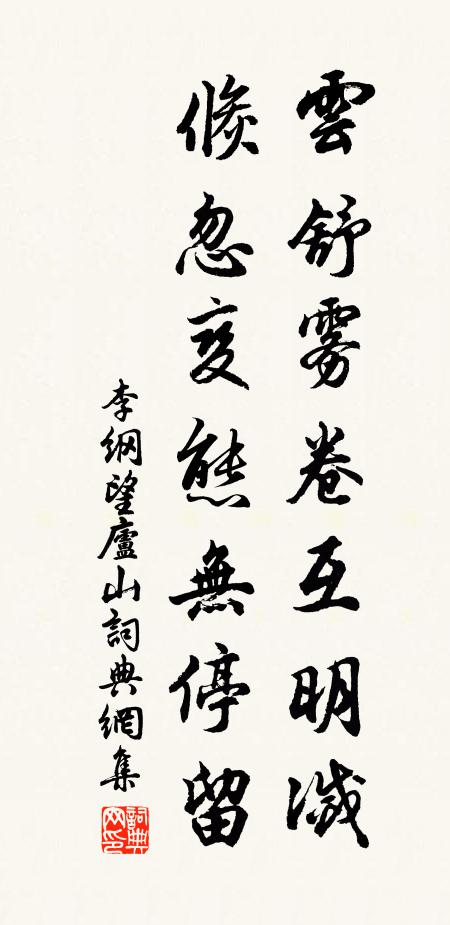 雲舒雾卷互明滅
倐忽变態無停留
李綱望廬山詞典網集
詞典
网印